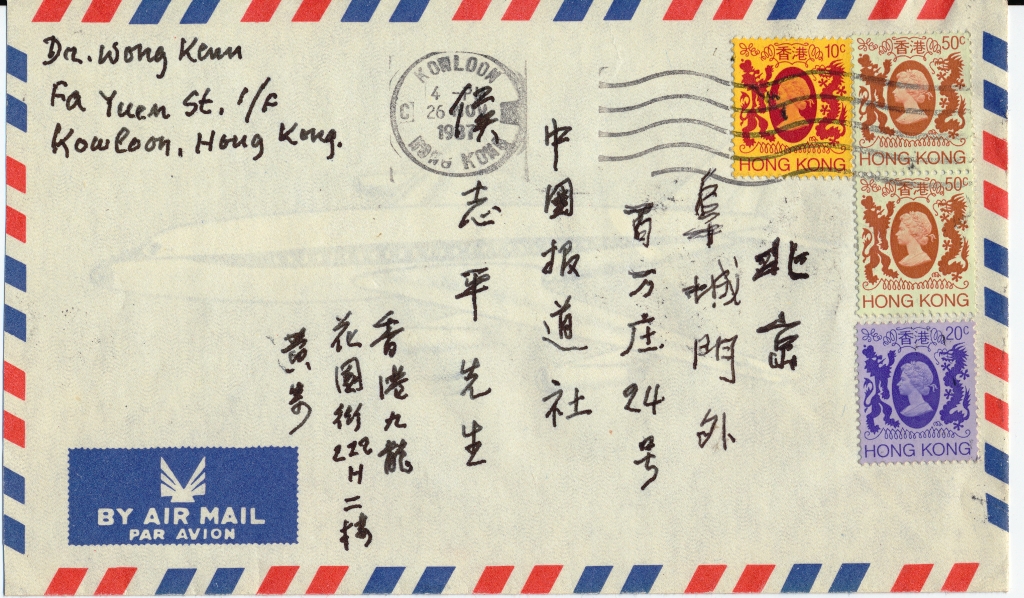 Dr. Wong Keun
Fa Yuen St. 1/F
Kowloon, Hong Kong.
KOWLOON
4 -
26 NOV
1987
C
HONG KONG
香港 10c
HONG KONG
香港 50c
HONG KONG
香港 50c
HONG KONG
香港 20c
HONG KONG
北京
阜城門外
百万庄24号
中國报道社
侯志平先生
香港九龍
花園街222H二楼
黄
BY AIR MAIL
PAR AVION